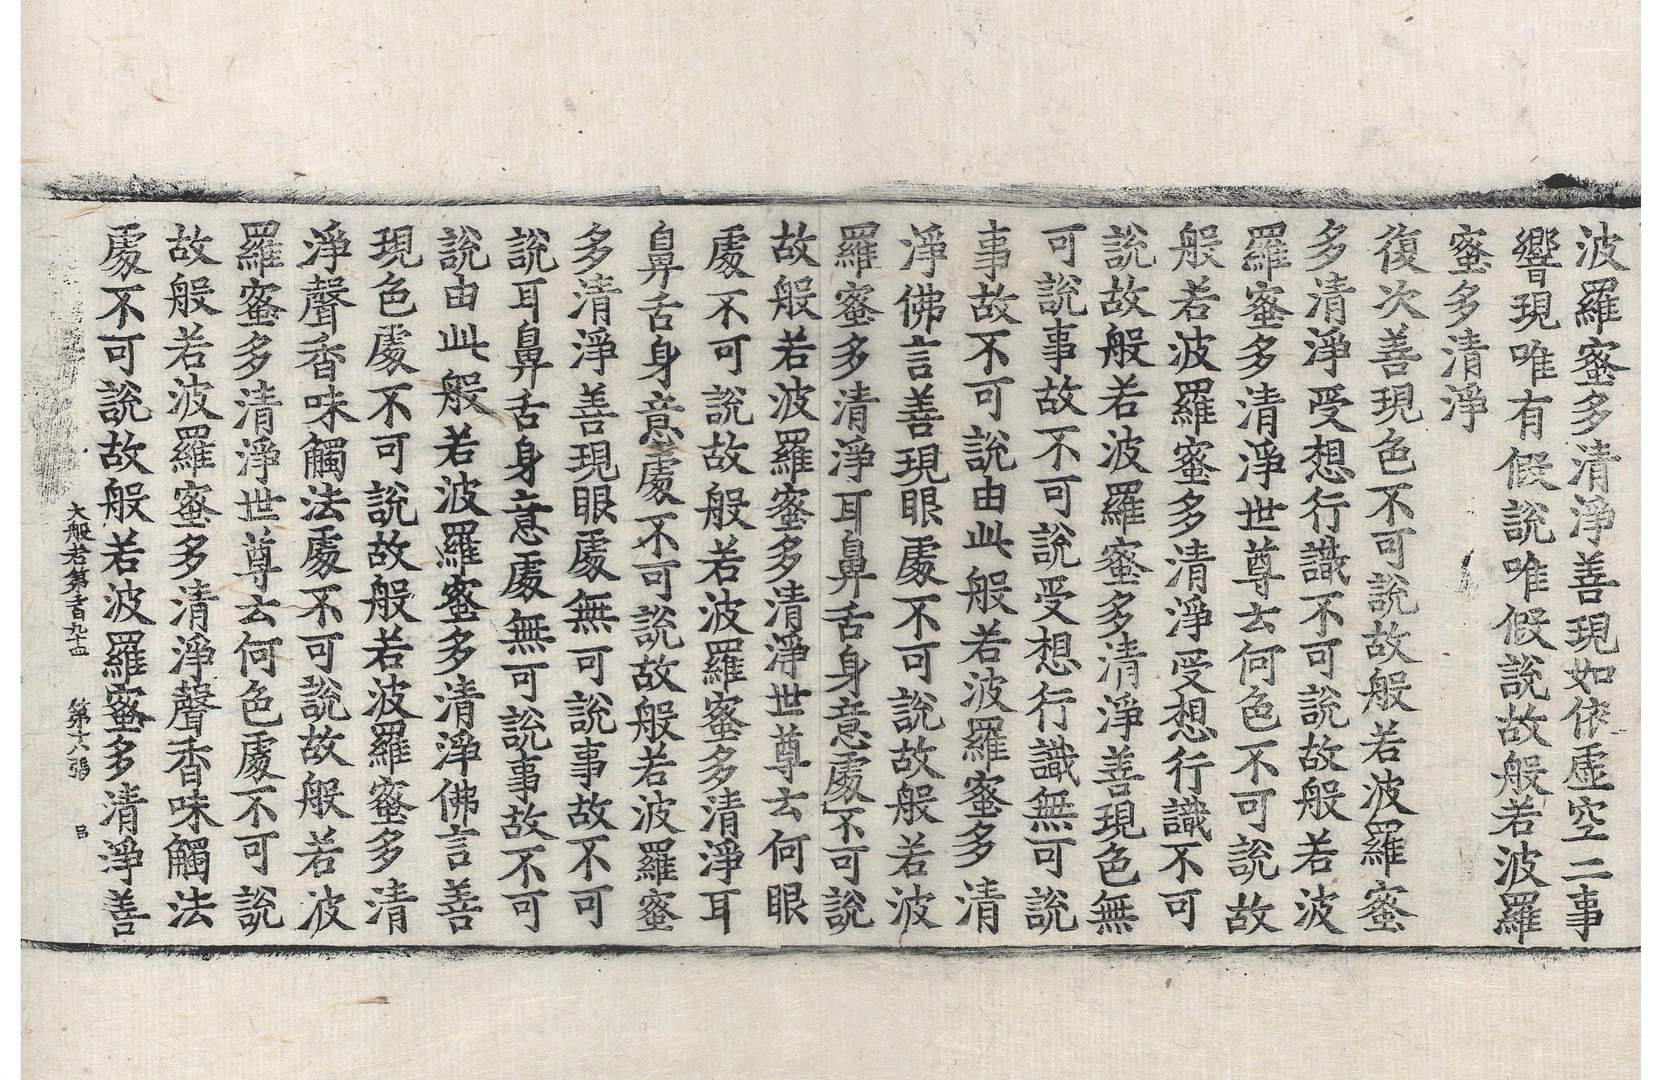 波羅蜜多清淨善現如依虛空二事
響現唯有假說唯假說故般若波羅
蜜多清淨
復次善現色不可說故般若波羅蜜
多清淨受想行識不可說故般若波
羅蜜多清淨世尊云何色不可說故
般若波羅蜜多清淨受想行識不可
說故般若波羅蜜多清淨善現色無
可說事故不可說受想行識無可說
事故不可說由此般若波羅蜜多清
淨佛言善現眼處不可說故般若波
羅蜜多清淨耳鼻舌身意處不可說
故般若波羅蜜多清淨世尊云何眼
處不可說故般若波羅蜜多清淨耳
鼻舌身意處不可說故般若波羅蜜
多清淨善現眼處無可說事故不可
說耳鼻舌身意處無可說事故不可
說由此般若波羅蜜多清淨佛言善
現色處不可說故般若波羅蜜多清
淨聲香味觸法處不可說故般若波
羅蜜多清淨世尊云何色處不可說
故般若波羅蜜多清淨聲香味觸法
處不可說故般若波羅蜜多清淨善
大般若第二百九十四 第十六張 呂